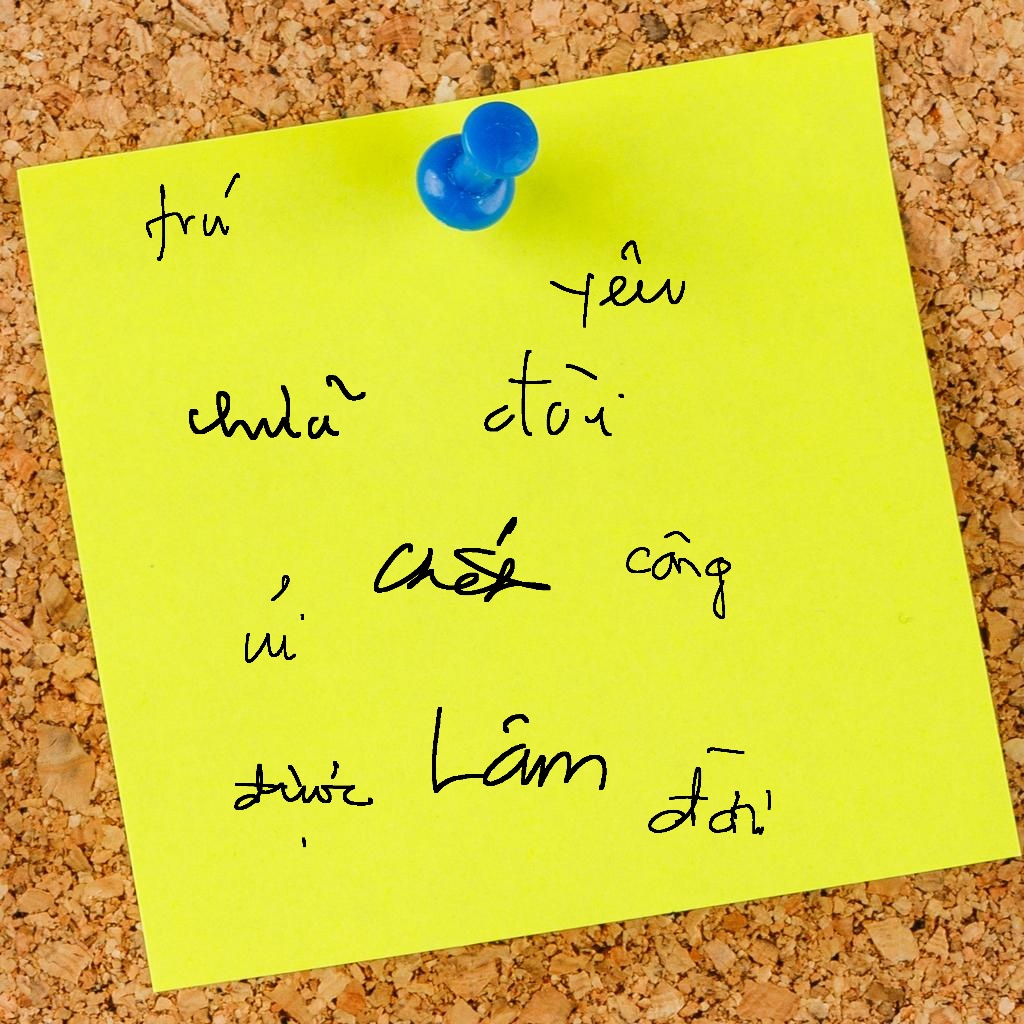 trú
yêu
chữa đòi
chết công
được Lâm đời